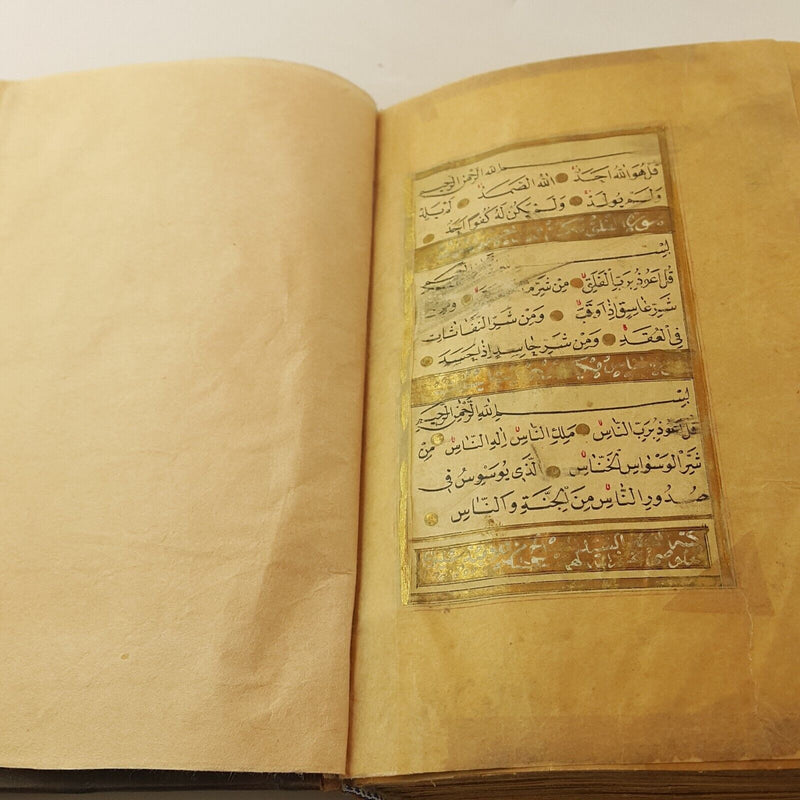 الله الرحمن الرحيم
قُلْ هُوَ اللّٰهُ اَحَدٌ اللّٰهُ الصَّمَدُ لَمْ يَلِدْ
وَلَمْ يُولَدْ وَلَمْ يَكُنْ لَهُ كُفُوًا اَحَدٌ
سورة الفلق
بِسْمِ
قُلْ اَعُوذُ بِرَبِّ الْفَلَقِ مِنْ شَرِّ
شَرِّ غَاسِقٍ اِذَا وَقَبَ وَمِنْ شَرِّ النَّفَّاثَاتِ
فِي الْعُقَدِ وَمِنْ شَرِّ حَاسِدٍ اِذَا حَسَدَ
بِسْمِ اللّٰهِ الرَّحْمٰنِ الرَّحِيمِ
قُلْ اَعُوذُ بِرَبِّ النَّاسِ مَلِكِ النَّاسِ اِلٰهِ النَّاسِ مِنْ
شَرِّ الْوَسْوَاسِ الْخَنَّاسِ الَّذِي يُوَسْوِسُ فِي
صُدُورِ النَّاسِ مِنَ الْجِنَّةِ وَالنَّاسِ
كتبه السيد